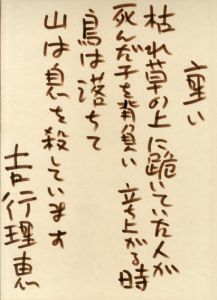 重い
枯れ草の上に跪いていた人が
死んだ子を背負い 立ち上がる時
鳥は落ちて
山は息を殺しています
吉行理恵